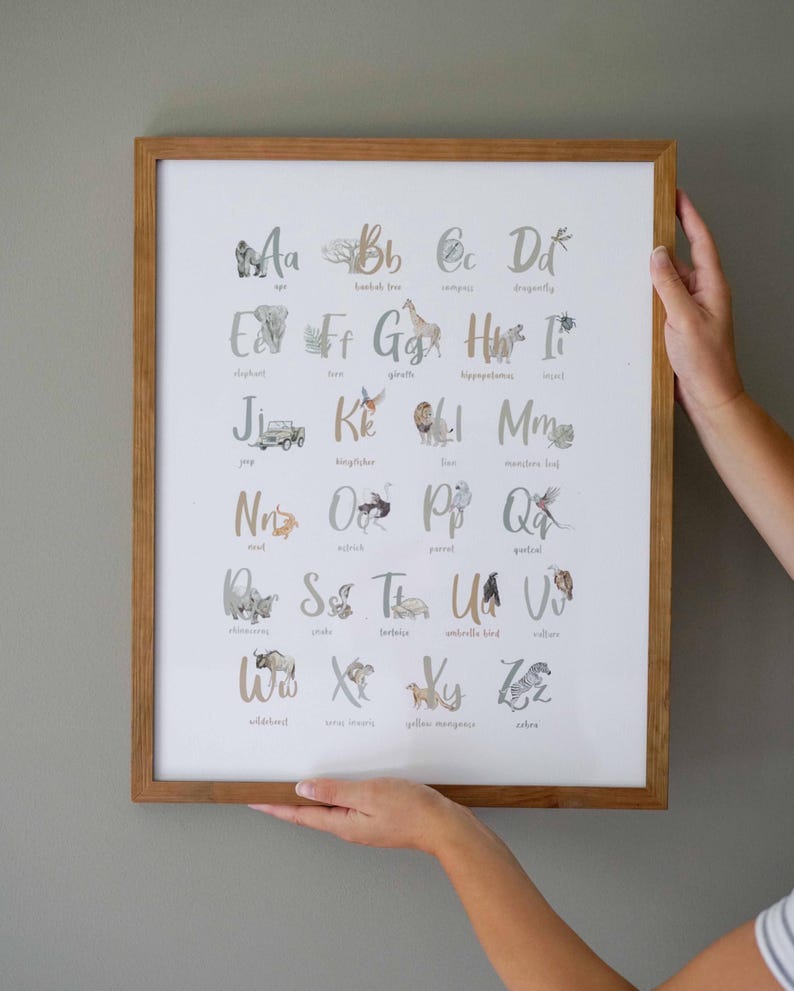 Aa Bb Cc Dd
ape baobab tree compass dragonfly
Ee Ff Gg Hh Ii
elephant fern giraffe hippopotamus insect
Jj Kk Ll Mm
jeep kingfisher lion monstera leaf
Nn Oo Pp Qq
newt ostrich parrot quetzal
Rr Ss Tt Uu Vv
rhinoceros snake tortoise umbrella bird vulture
Ww Xx Yy Zz
wildebeest xerus inauris yellow mongoose zebra